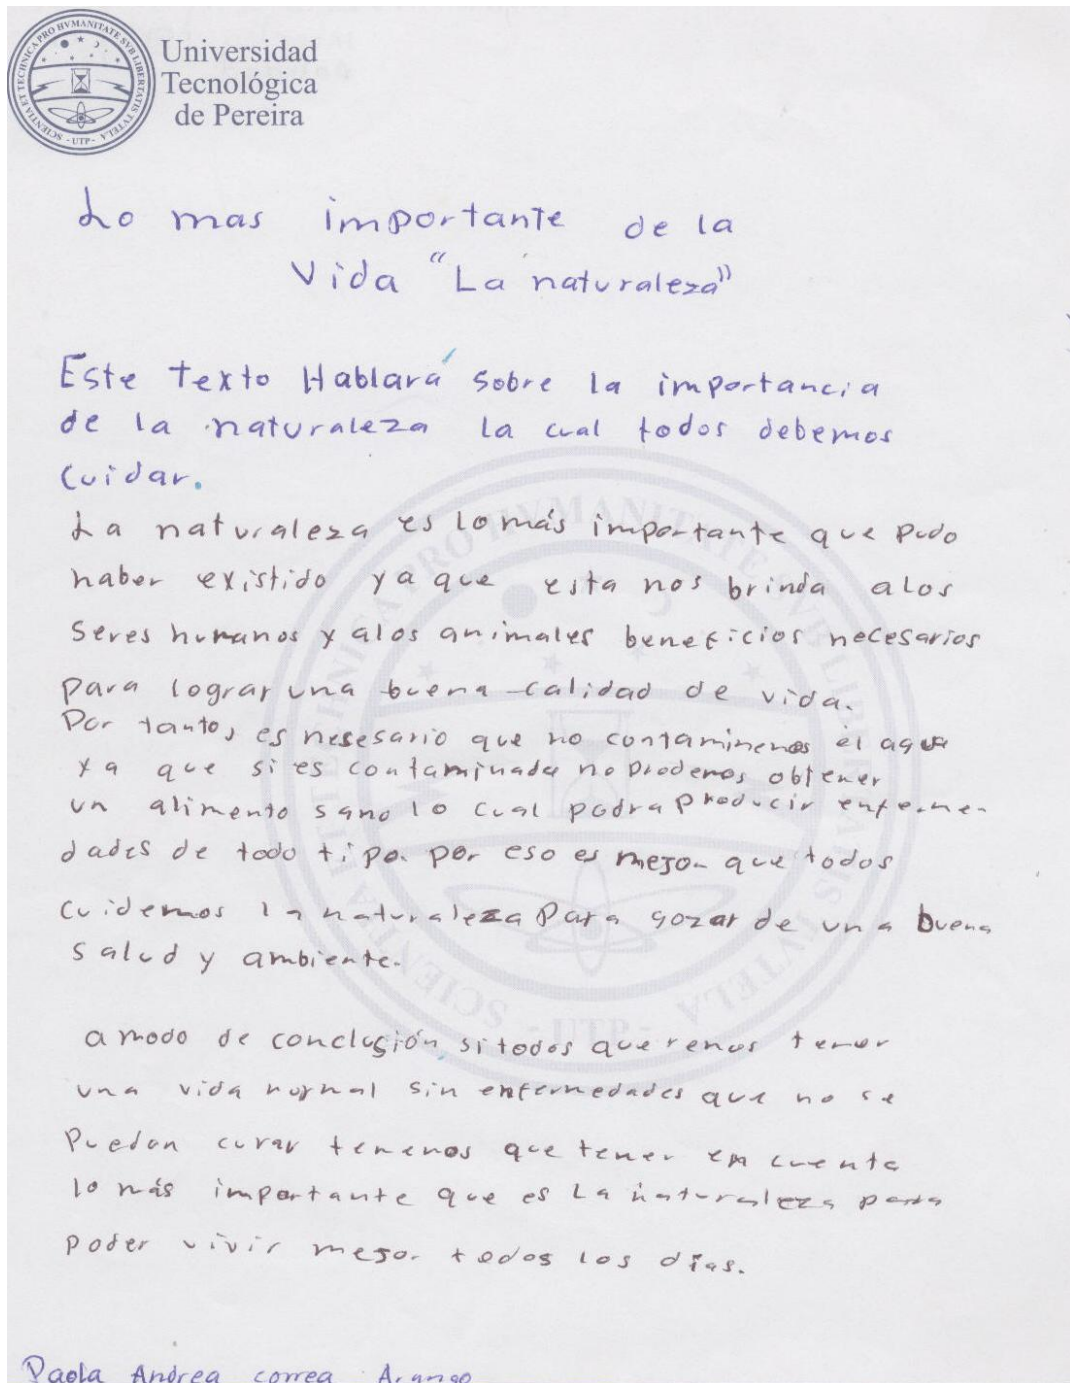 Universidad
Tecnológica
de Pereira
SCIENTIA ET TECHNICA PRO HVMANITATE SVB LIBERTATIS TVTELA - UTP -
Lo mas importante de la
Vida "La naturaleza"
Este texto Hablará sobre la importancia
de la naturaleza la cual todos debemos
cuidar.
La naturaleza es lo más importante que pudo
haber existido ya que esta nos brinda alos
seres humanos y alos animales beneficios necesarios
para lograr una buena calidad de vida.
Por tanto, es nesesario que no contaminemos el agua
ya que si es contaminada no prodemos obtener
un alimento sano lo cual podra producir enferme-
dades de todo tipo. por eso es mejor que todos
cuidemos la naturaleza para gozar de una buena
salud y ambiente.
a modo de conclusión, si todos queremos tener
una vida normal sin enfermedades que no se
puedan curar tenemos que tener en cuenta
lo más importante que es La naturaleza para
poder vivir mejor todos los días.
Paola Andrea correa Arango